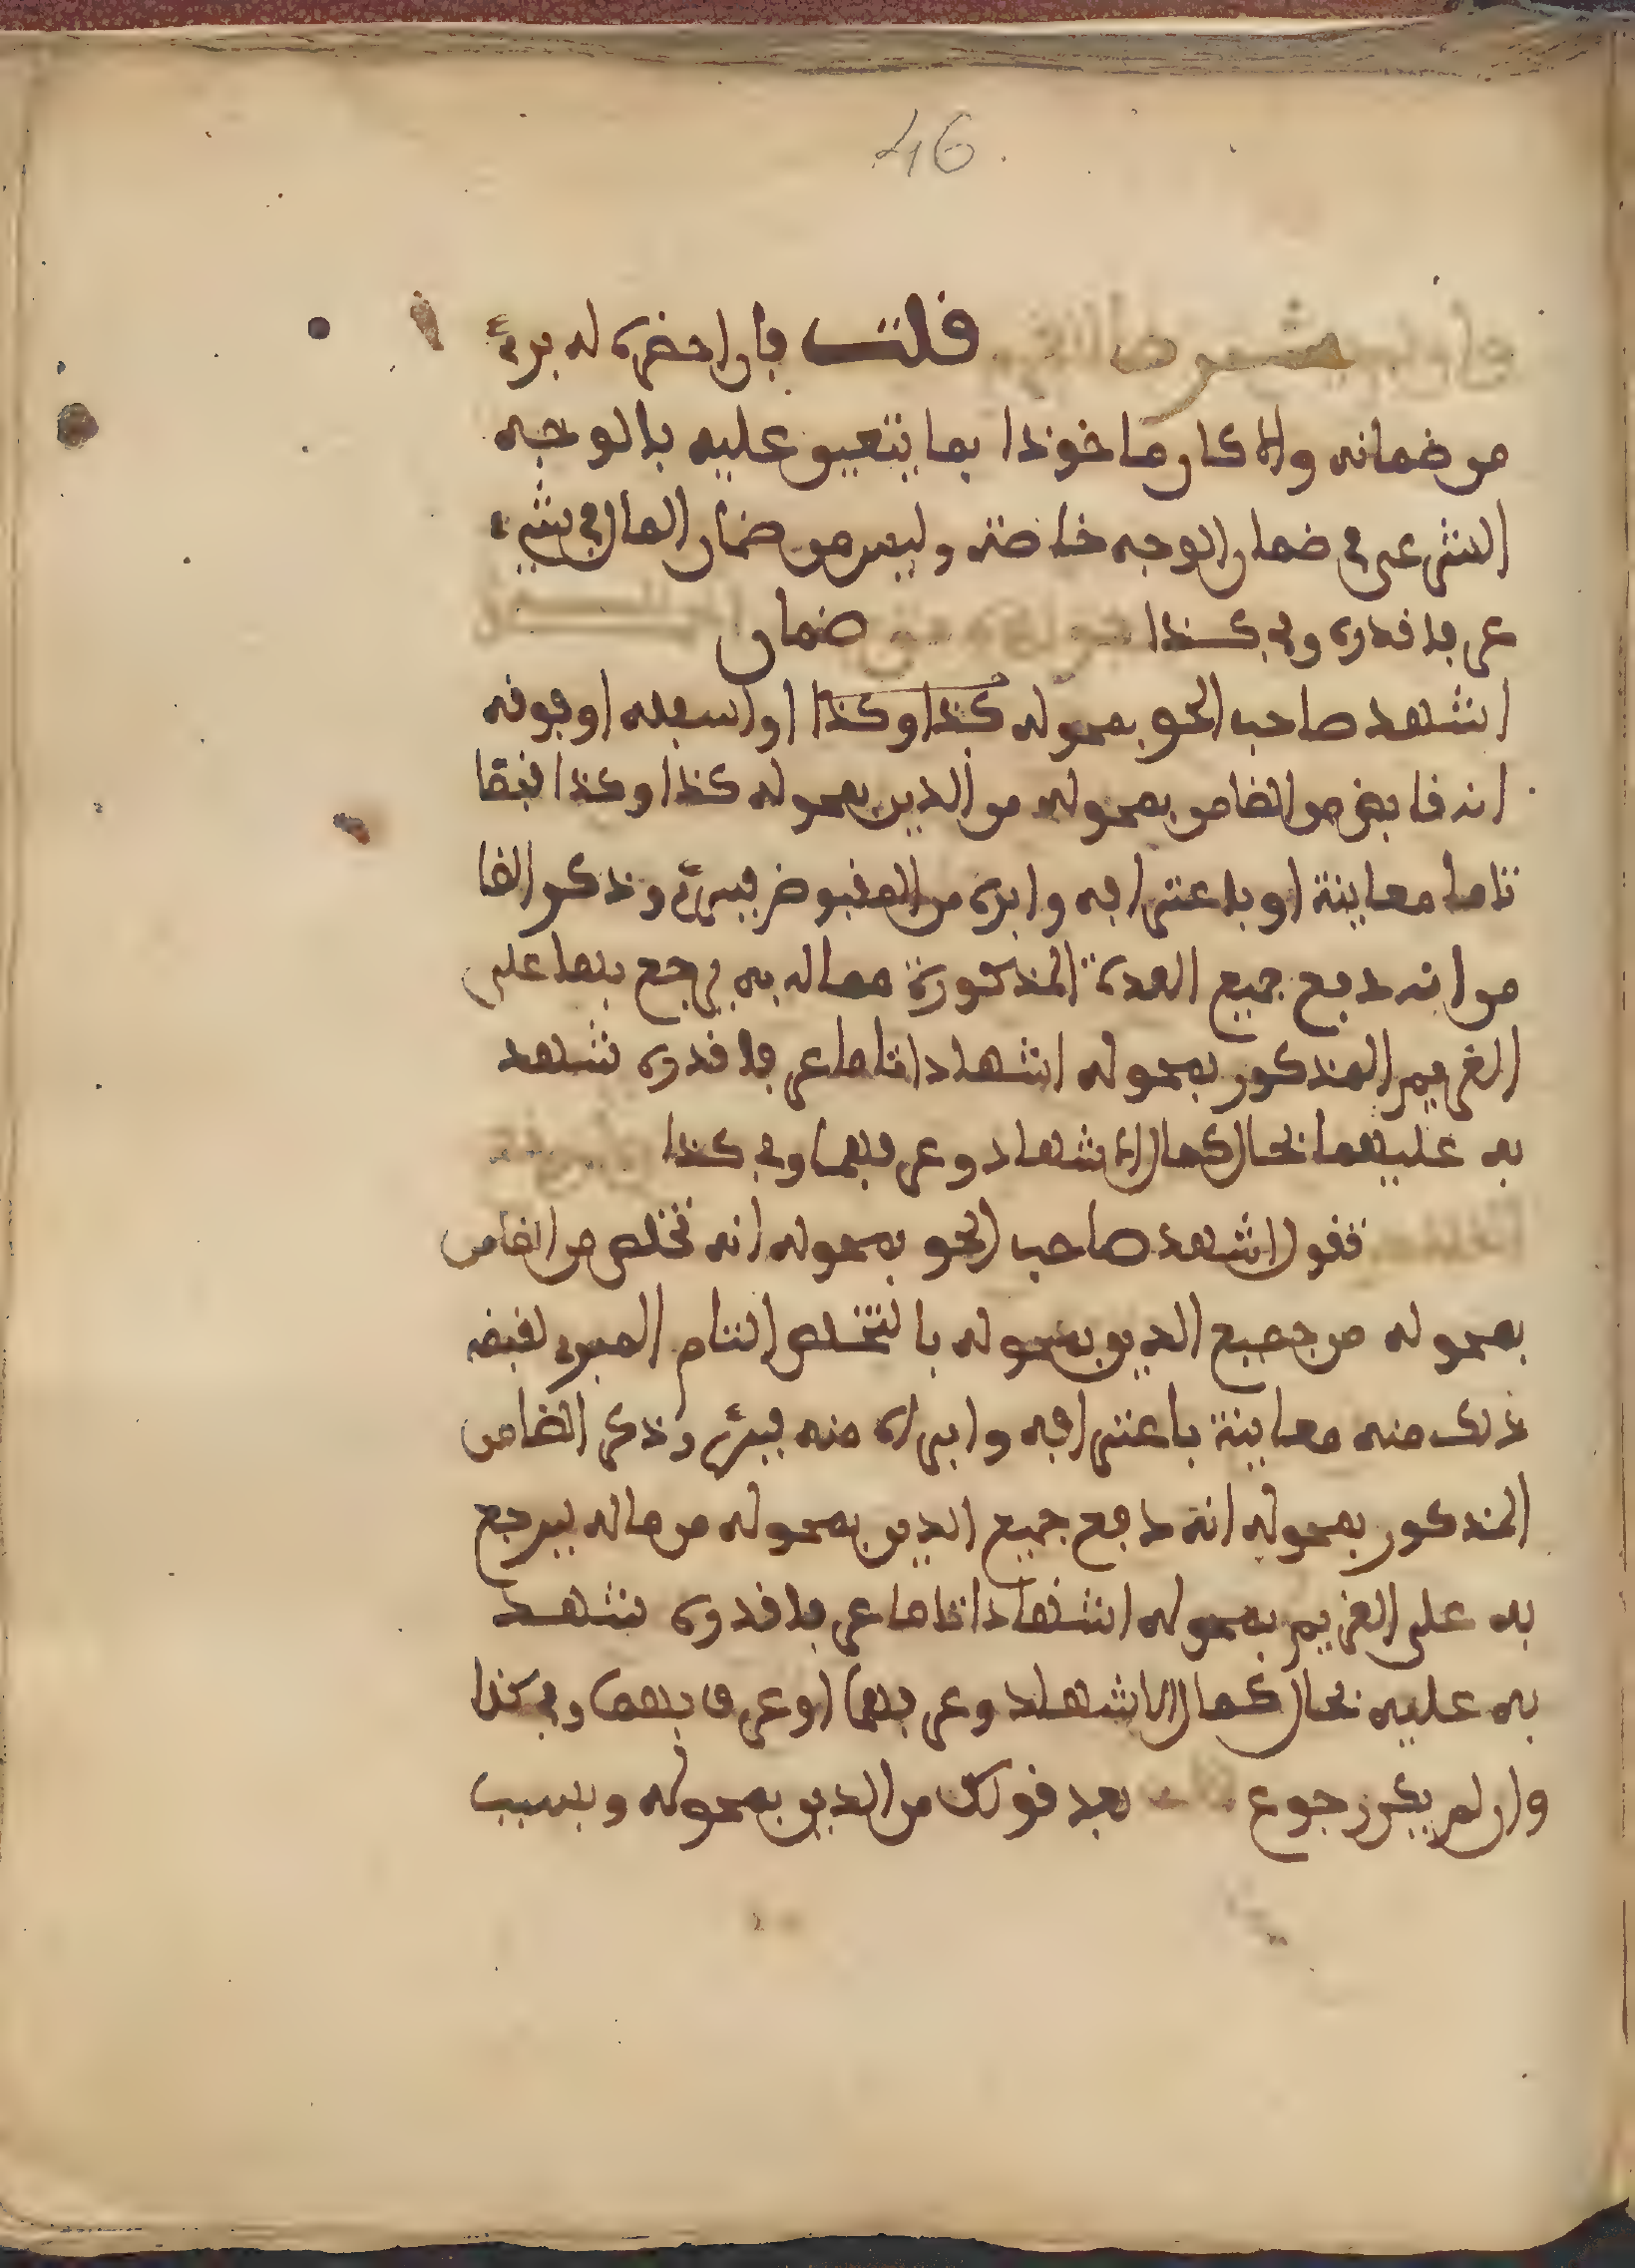 46
قلت فإن احضره له برئ
من ضمانه والا كان ماخوذا بما يتعين عليه بالوجه
الشرعي في ضمان الوجه خاصة وليس من ضمان المال في شيء
عرفا قدره وفي كذا ضمان
اشهد صاحب الحق بمحوله كذا وكذا او اسفله او فوقه
انه قابض من الضامن بمحوله من الدين بمحوله كذا وكذا قبضا
تاما معاينة او باعترافه وابرئ من المقبوض فبرئ وذكر الضا
من انه دفع جميع العدة المذكورة مماله به يرجع بها على
الغريم المذكور بمحوله اشهادا تاما عرفا قدره شهد
به عليهما بحال كمال الاشهاد وعرفهما وفي كذا
تقول اشهد صاحب الحق بمحوله انه تخلص من الضامن
بمحوله من جميع الدين بمحوله بالتخلص التام المبرئ لقبضه
ذلك منه معاينة باعترافه وابراه منه فبرئ وذكر الضامن
المذكور بمحوله انه دافع جميع الدين بمحوله من ماله ليرجع
به على الغريم بمحوله اشهادا تاما عرفا قدره شهد
به عليه بحال كمال الاشهاد وعرفهما او عرف بهما وفي كذا
وان لم يكن رجوع بعد قولك من الدين بمحوله وبسبب